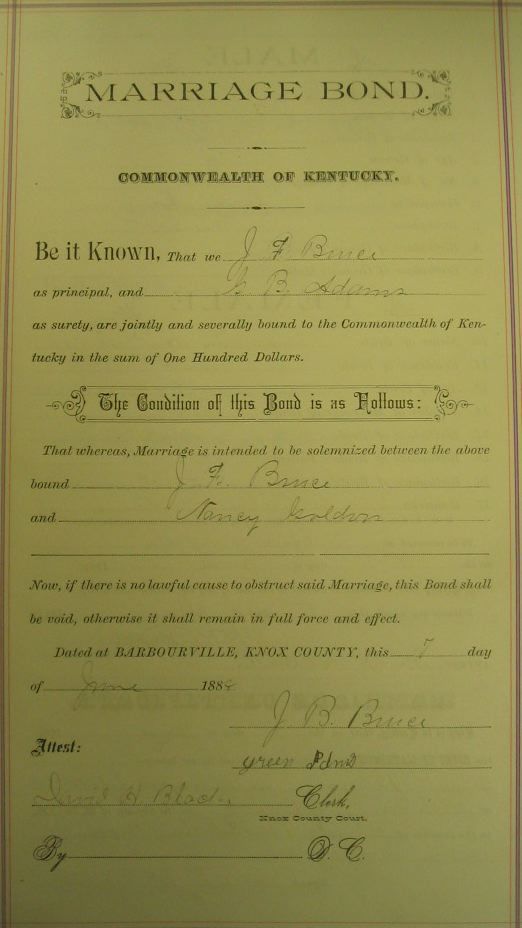 MARRIAGE BOND.
COMMONWEALTH OF KENTUCKY.
Be it Known, That we J F Bruce
as principal, and G B Adams
as surety, are jointly and severally bound to the Commonwealth of Ken-
tucky in the sum of One Hundred Dollars.
The Condition of this Bond is as Follows:
That whereas, Marriage is intended to be solemnized between the above
bound J F. Bruce
and Nancy
Now, if there is no lawful cause to obstruct said Marriage, this Bond shall
be void, otherwise it shall remain in full force and effect.
Dated at BARBOURVILLE, KNOX COUNTY, this 7 day
of June 188
J. B. Bruce
Attest:
green
David H Clerk,
Knox County Court.
By D. C.